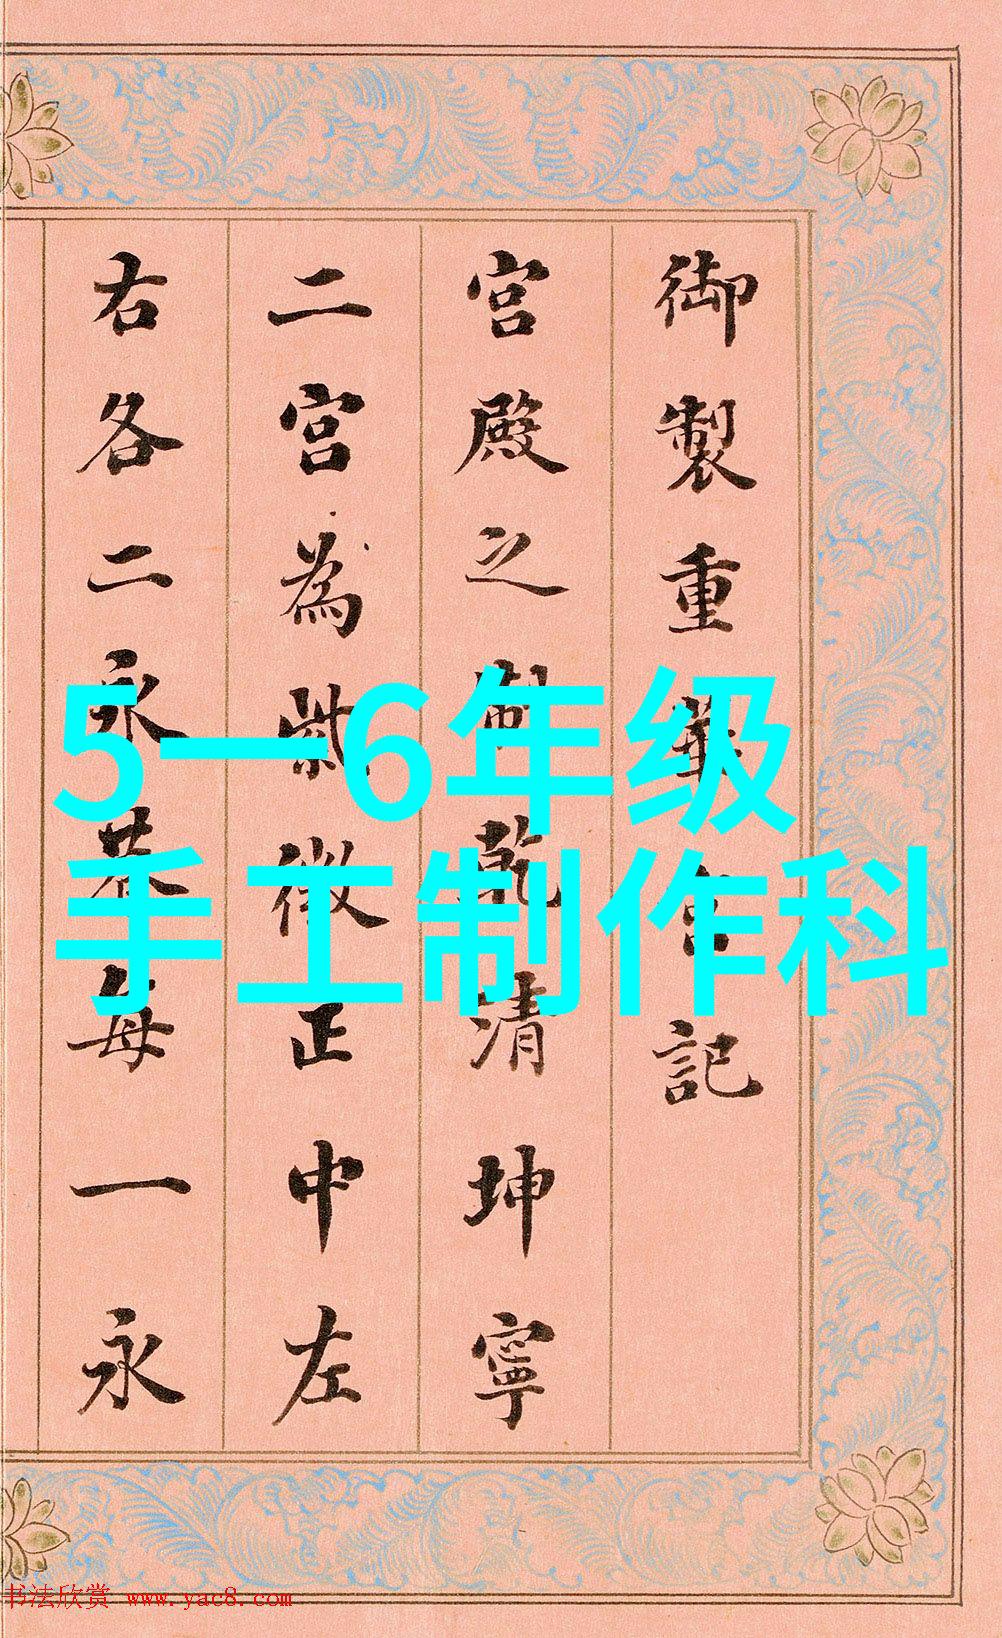 御製重華宮記
宮殿之制乾清坤寧
二宮為紫微正中左
右各二永巷每一永
5一6年级
手工制作科
书法欣赏 www.yac8.com